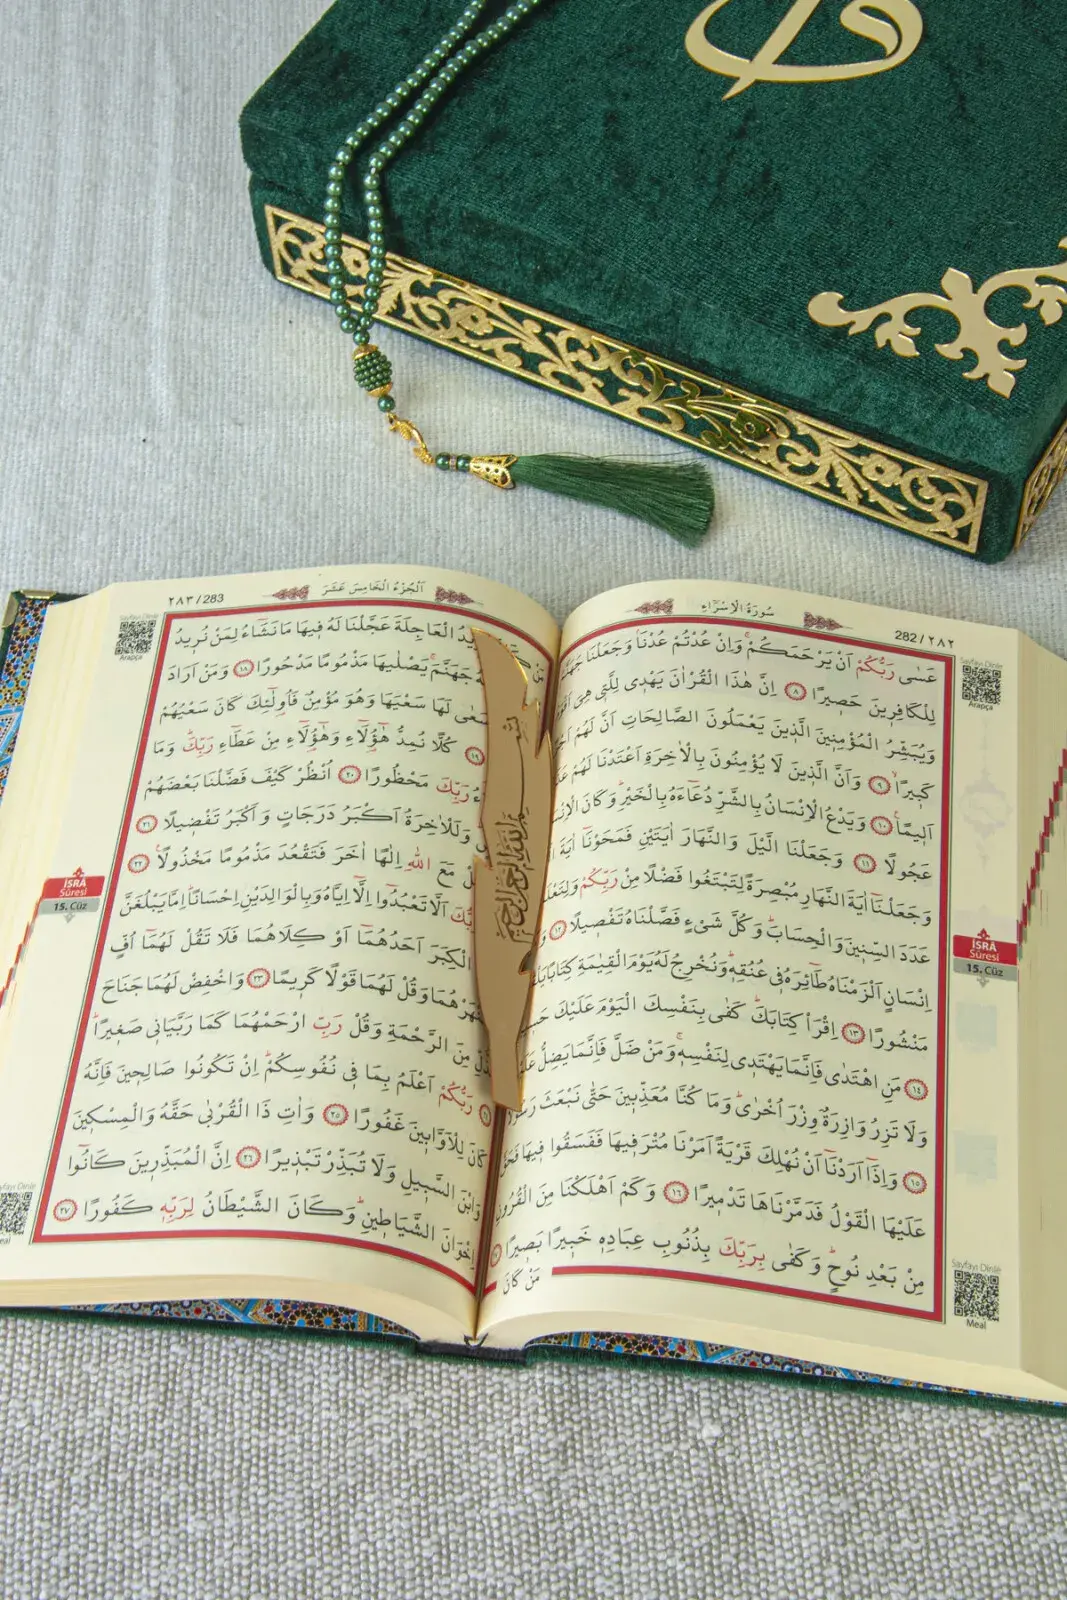 282/٢٨٢
سُورَةُ الْاِسْرَاءِ
عَسٰى رَبُّكُمْ اَنْ يَرْحَمَكُمْۚ وَاِنْ عُدْتُمْ عُدْنَاۢ وَجَعَلْنَا
لِلْكَافِرٖينَ حَصٖيرًا ﴿٨﴾ اِنَّ هٰذَا الْقُرْاٰنَ يَهْدٖى لِلَّتٖى هِىَ
وَيُبَشِّرُ الْمُؤْمِنٖينَ الَّذٖينَ يَعْمَلُونَ الصَّالِحَاتِ اَنَّ لَهُمْ
كَبٖيرًاۙ ﴿٩﴾ وَاَنَّ الَّذٖينَ لَا يُؤْمِنُونَ بِالْاٰخِرَةِ اَعْتَدْنَا لَهُمْ
اَلٖيمًاࣖ ﴿١٠﴾ وَيَدْعُ الْاِنْسَانُ بِالشَّرِّ دُعَٓاءَهُ بِالْخَيْرِؕ وَكَانَ
عَجُولًا ﴿١١﴾ وَجَعَلْنَا الَّيْلَ وَالنَّهَارَ اٰيَتَيْنِ فَمَحَوْنَٓا اٰيَةَ
وَجَعَلْنَٓا اٰيَةَ النَّهَارِ مُبْصِرَةً لِتَبْتَغُوا فَضْلًا مِنْ رَبِّكُمْ
عَدَدَ السِّنٖينَ وَالْحِسَابَؕ وَكُلَّ شَىْءٍ فَصَّلْنَاهُ تَفْصٖيلًا ﴿١٢﴾
اِنْسَانٍ اَلْزَمْنَاهُ طَٓائِرَهُ فٖى عُنُقِهٖؕ وَنُخْرِجُ لَهُ يَوْمَ الْقِيٰمَةِ كِتَابًا
مَنْشُورًا ﴿١٣﴾ اِقْرَأْ كِتَابَكَؕ كَفٰى بِنَفْسِكَ الْيَوْمَ عَلَيْكَ
﴿١٤﴾ مَنِ اهْتَدٰى فَاِنَّمَا يَهْتَدٖى لِنَفْسِهٖۚ وَمَنْ ضَلَّ فَاِنَّمَا يَضِلُّ
وَلَا تَزِرُ وَازِرَةٌ وِزْرَ اُخْرٰىؕ وَمَا كُنَّا مُعَذِّبٖينَ حَتّٰى نَبْعَثَ
﴿١٥﴾ وَاِذَٓا اَرَدْنَٓا اَنْ نُهْلِكَ قَرْيَةً اَمَرْنَا مُتْرَفٖيهَا فَفَسَقُوا فٖيهَا
عَلَيْهَا الْقَوْلُ فَدَمَّرْنَاهَا تَدْمٖيرًا ﴿١٦﴾ وَكَمْ اَهْلَكْنَا مِنَ الْقُرُونِ
مِنْ بَعْدِ نُوحٍؕ وَكَفٰى بِرَبِّكَ بِذُنُوبِ عِبَادِهٖ خَبٖيرًا بَصٖيرًا
مَنْ كَانَ
Sayfayı Dinle
Arapça
İSRÂ
Sûresi
15. Cüz
Sayfayı Dinle
Meal
٢٨٣/283
اَلْجُزْءُ الْخَامِسَ عَشَرَ
الْعَاجِلَةَ عَجَّلْنَا لَهُ فٖيهَا مَا نَشَٓاءُ لِمَنْ نُرٖيدُ
جَهَنَّمَۚ يَصْلٰيهَا مَذْمُومًا مَدْحُورًا ﴿١٨﴾ وَمَنْ اَرَادَ
لَهَا سَعْيَهَا وَهُوَ مُؤْمِنٌ فَاُولٰٓئِكَ كَانَ سَعْيُهُمْ
﴿١٩﴾ كُلًّا نُمِدُّ هٰٓؤُلَٓاءِ وَهٰٓؤُلَٓاءِ مِنْ عَطَٓاءِ رَبِّكَؕ وَمَا
رَبِّكَ مَحْظُورًا ﴿٢٠﴾ اُنْظُرْ كَيْفَ فَضَّلْنَا بَعْضَهُمْ
وَلَلْاٰخِرَةُ اَكْبَرُ دَرَجَاتٍ وَاَكْبَرُ تَفْضٖيلًا ﴿٢١﴾
مَعَ اللّٰهِ اِلٰهًا اٰخَرَ فَتَقْعُدَ مَذْمُومًا مَخْذُولًاࣖ ﴿٢٢﴾
اَلَّا تَعْبُدُٓوا اِلَّٓا اِيَّاهُ وَبِالْوَالِدَيْنِ اِحْسَانًاؕ اِمَّا يَبْلُغَنَّ
الْكِبَرَ اَحَدُهُمَٓا اَوْ كِلَاهُمَا فَلَا تَقُلْ لَهُمَٓا اُفٍّ
وَقُلْ لَهُمَا قَوْلًا كَرٖيمًا ﴿٢٣﴾ وَاخْفِضْ لَهُمَا جَنَاحَ
مِنَ الرَّحْمَةِ وَقُلْ رَبِّ ارْحَمْهُمَا كَمَا رَبَّيَانٖى صَغٖيرًاؕ
رَبُّكُمْ اَعْلَمُ بِمَا فٖى نُفُوسِكُمْؕ اِنْ تَكُونُوا صَالِحٖينَ فَاِنَّهُ
كَانَ لِلْاَوَّابٖينَ غَفُورًا ﴿٢٥﴾ وَاٰتِ ذَا الْقُرْبٰى حَقَّهُ وَالْمِسْكٖينَ
وَابْنَ السَّبٖيلِ وَلَا تُبَذِّرْ تَبْذٖيرًا ﴿٢٦﴾ اِنَّ الْمُبَذِّرٖينَ كَانُٓوا
اِخْوَانَ الشَّيَاطٖينِؕ وَكَانَ الشَّيْطَانُ لِرَبِّهٖ كَفُورًا ﴿٢٧﴾
Sayfayı Dinle
Arapça
İSRÂ
Sûresi
15. Cüz
Sayfayı Dinle
Meal
بسم الله الرحمن الرحيم